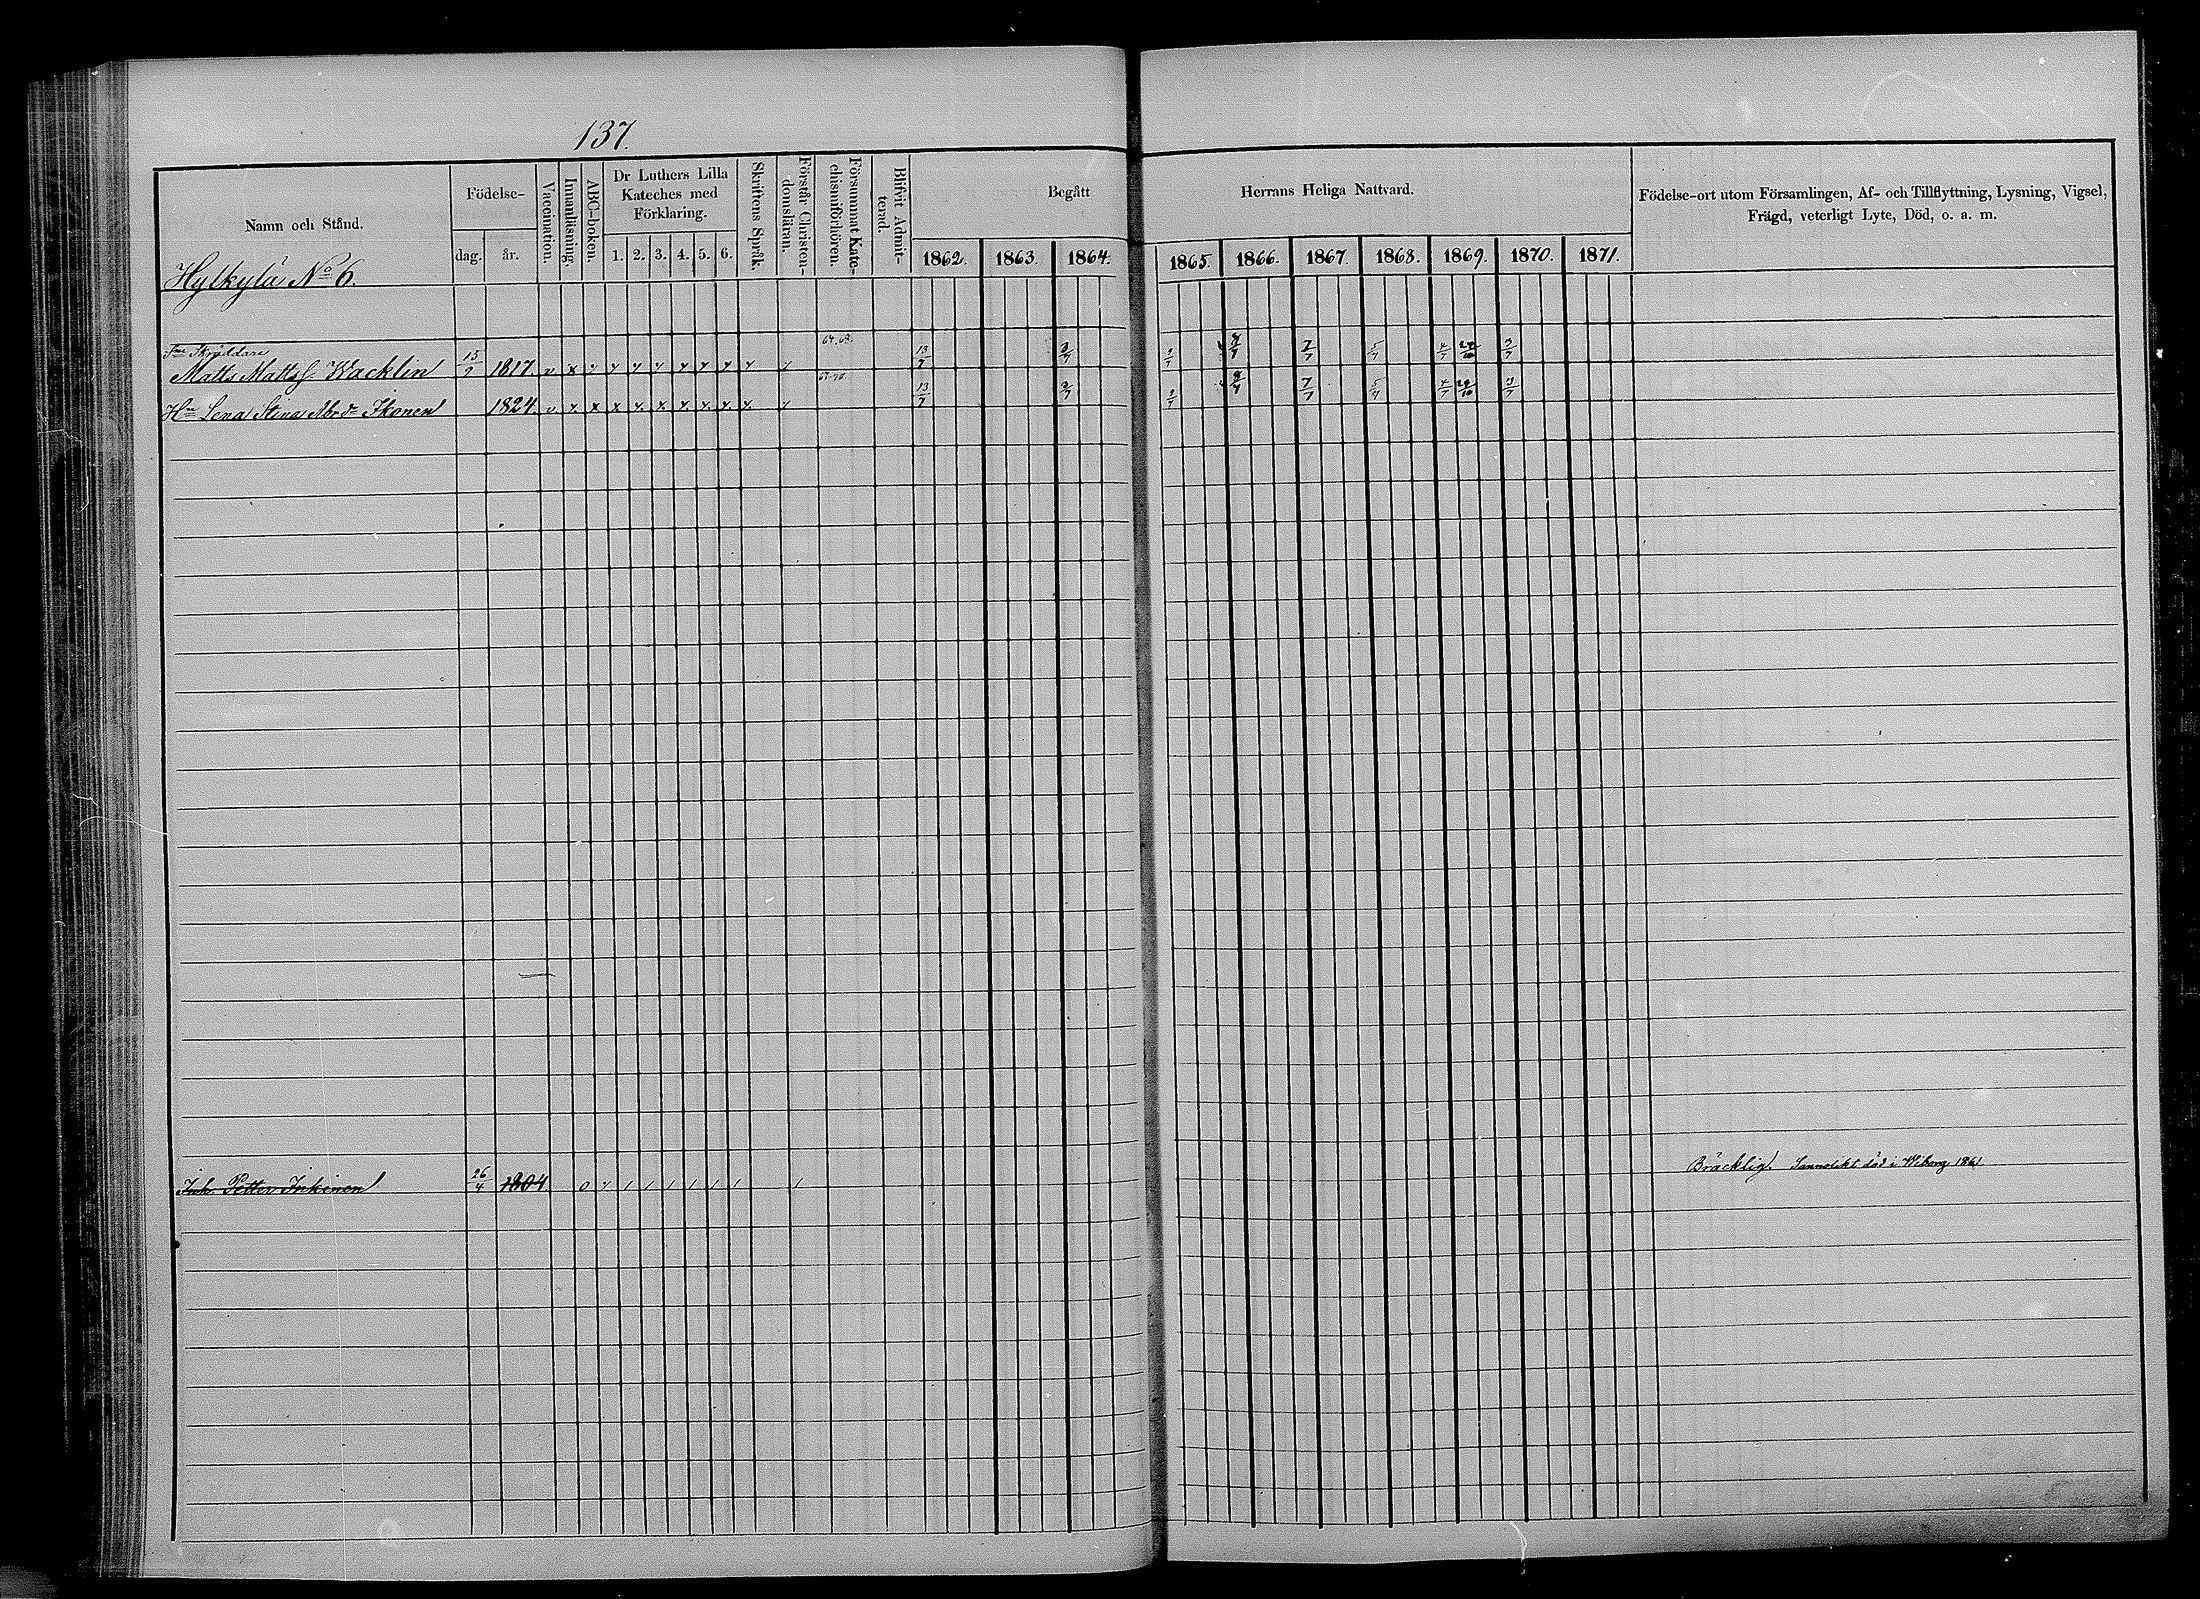 137.
Namn och Stånd.
Födelse-
dag.
år.
Vaccination.
Innanläsning.
ABC-boken.
Dr Luthers Lilla
Kateches med
Förklaring.
1. 2. 3. 4. 5. 6.
Skriftens Språk.
Förstår Christen-
domsläran.
Försummat Kate-
chismiförhören.
Blifvit Admit-
terad.
Begått
Herrans Heliga Nattvard.
1862. 1863. 1864. 1865. 1866. 1867. 1868. 1869. 1870. 1871.
Födelse-ort utom Församlingen, Af- och Tillflyttning, Lysning, Vigsel,
Frägd, veterligt Lyte, Död, o. a. m.
Hylkylä No 6.
Skräddare
Matts Mattss. Wacklin 1817.
Hu Lena Stina Abrd. Ikonen 1824.
Inh. Petter Inkinen 26/4 1804 Bräcklig. Sannolikt död i Wiborg 1861